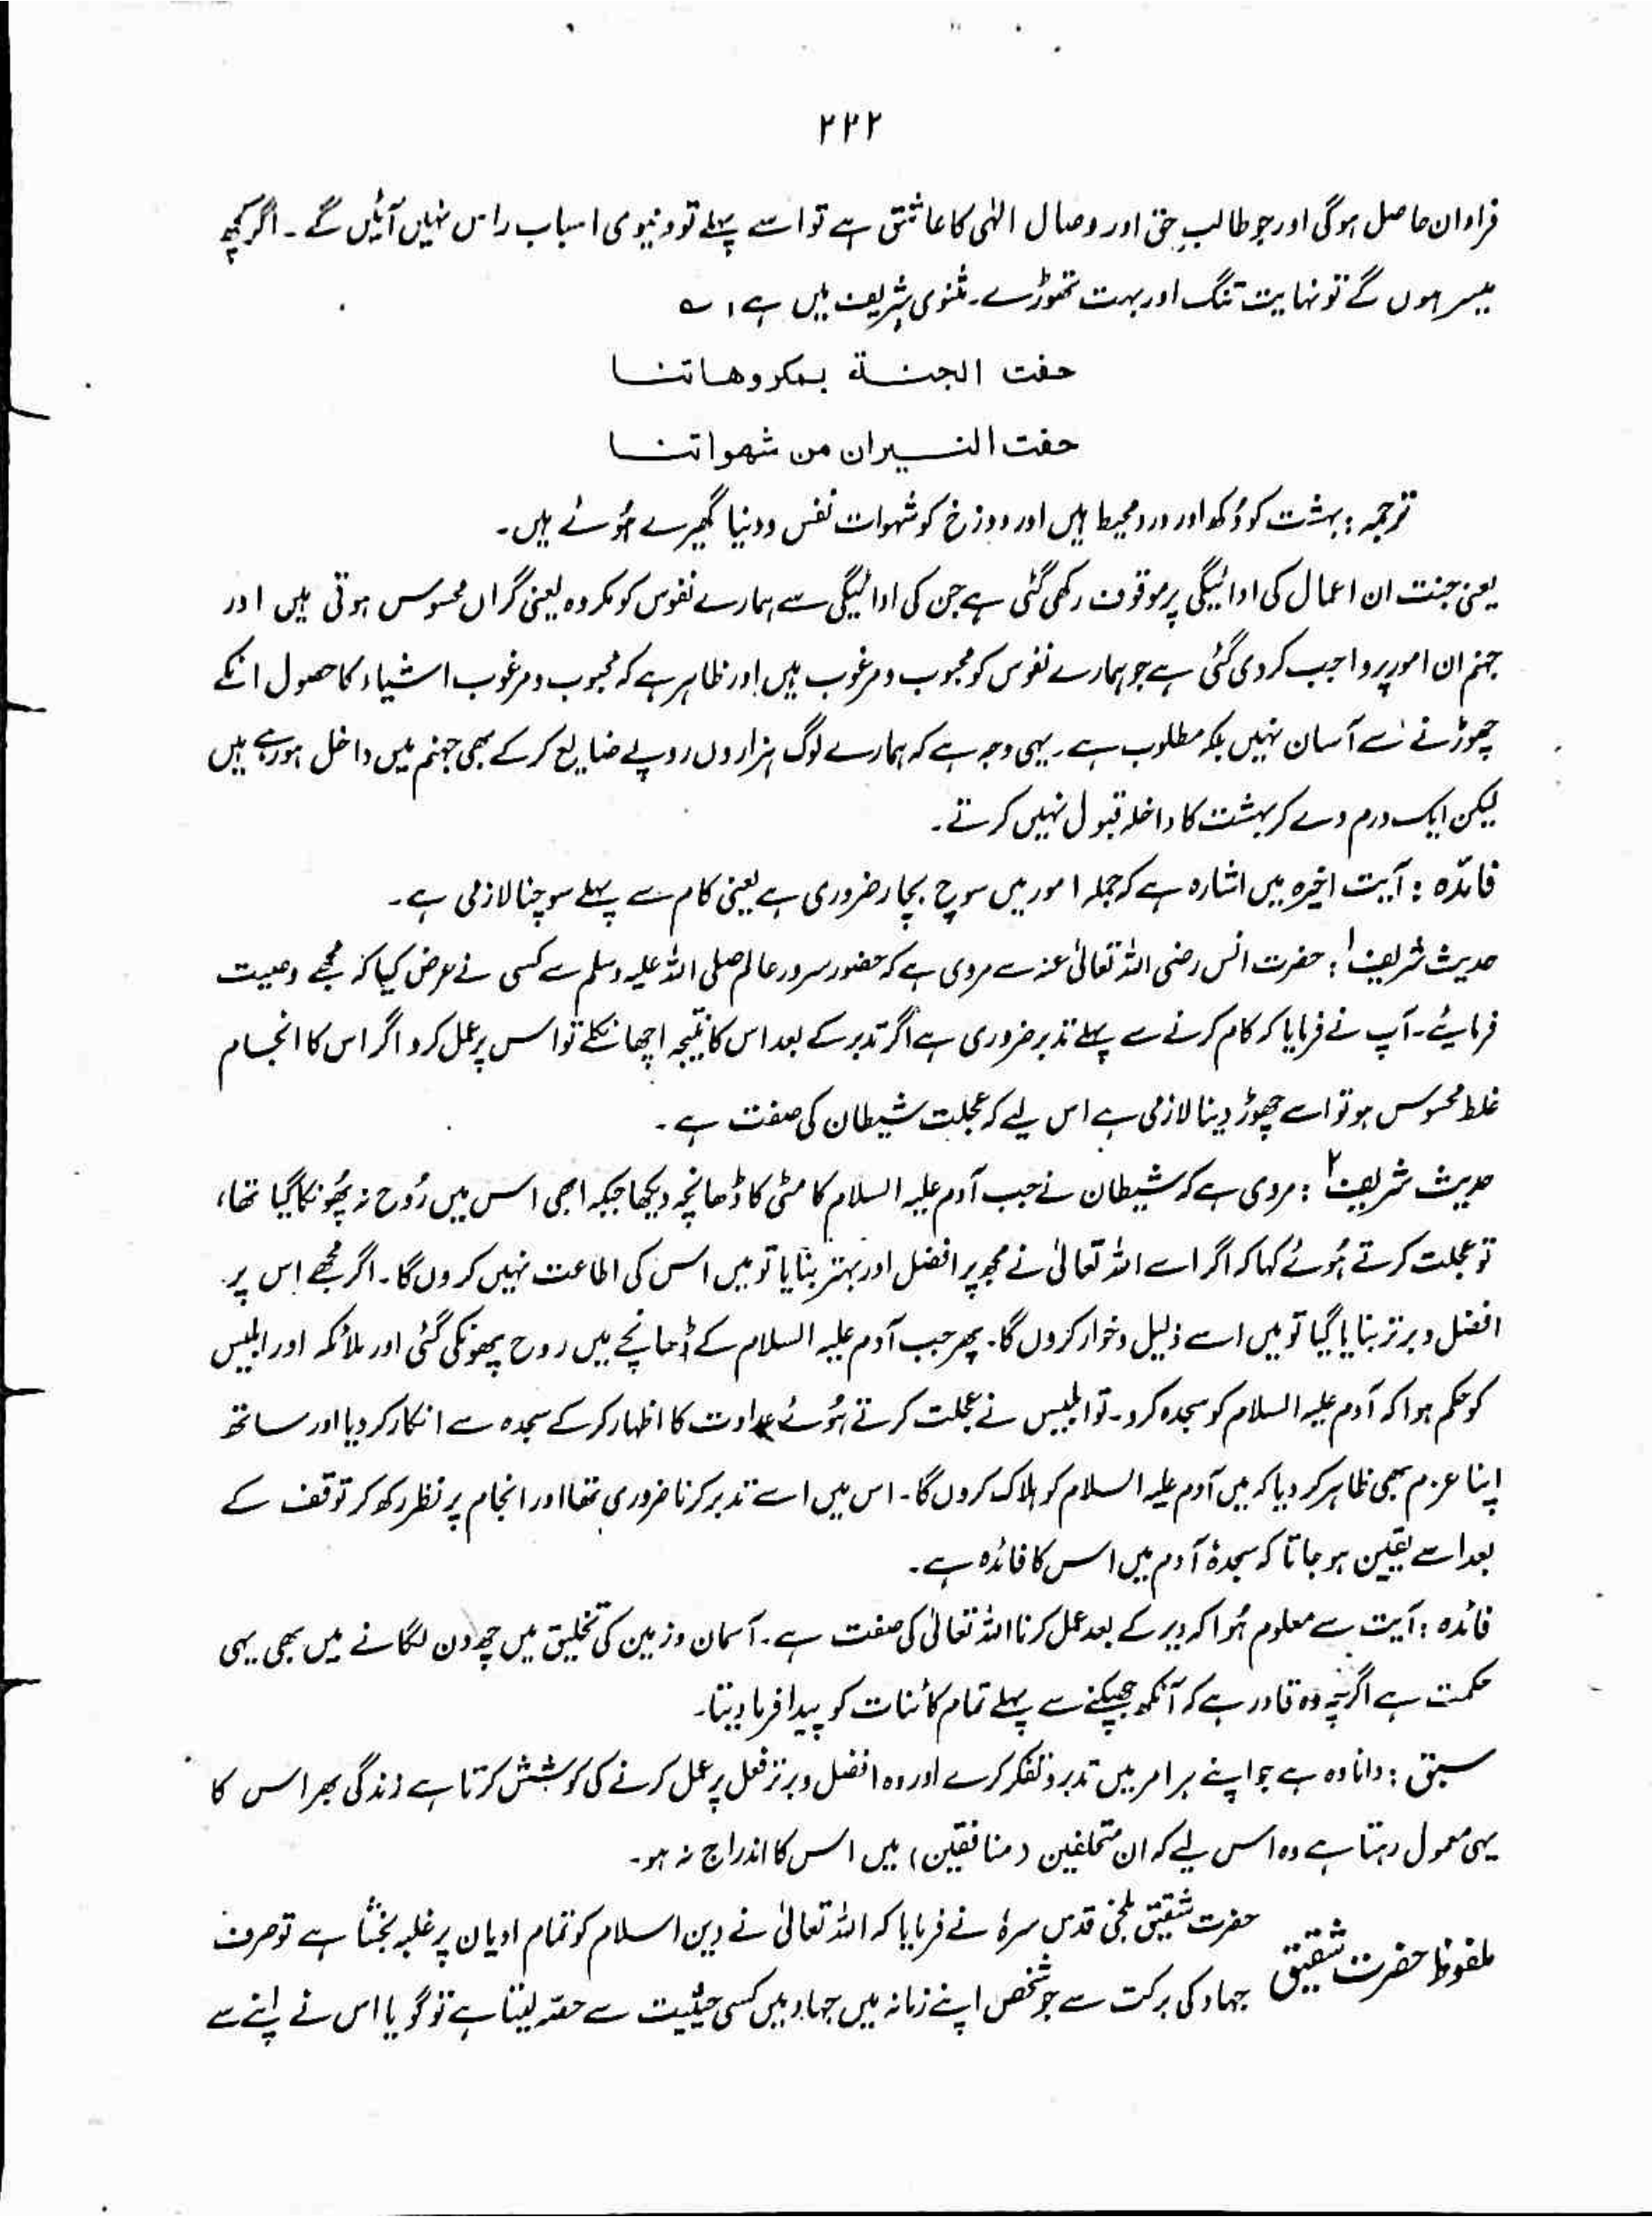 ۲۲۲
فراوان حاصل ہوگی اور جو طالبِ حق اور وصال الٰہی کا عاشق ہے تو اسے پہلے تو دنیوی اسباب راس نہیں آئیں گے ۔ اگر کچھ
میسر ہوں گے تو نہایت تنگ اور بہت تھوڑے ۔ مثنوی شریف میں ہے ؛ ؎
حفت الجنة بمكروهاتنا
حفت النيران من شهواتنا
ترجمہ : بہشت کو دُکھ اور درد محیط ہیں اور دوزخ کو شہوات نفس و دنیا گھیرے ہُوئے ہیں ۔
یعنی جنت ان اعمال کی ادائیگی پر موقوف رکھی گئی ہے جن کی ادائیگی سے ہمارے نفوس کو مکروہ یعنی گراں محسوس ہوتی ہیں اور
جہنم ان امور پر واجب کر دی گئی ہے جو ہمارے نفوس کو محبوب و مرغوب ہیں اور ظاہر ہے کہ محبوب و مرغوب اشیاء کا حصول انکے
چھوڑنے سے آسان نہیں بلکہ مطلوب ہے ۔ یہی وجہ ہے کہ ہمارے لوگ ہزاروں روپے ضایع کرکے بھی جہنم میں داخل ہو رہے ہیں
لیکن ایک درم دے کر بہشت کا داخلہ قبول نہیں کرتے ۔
فائدہ : آیت اخیرہ میں اشارہ ہے کہ جملہ امور میں سوچ بچار ضروری ہے یعنی کام سے پہلے سوچنا لازمی ہے ۔
حدیث شریف ۱ : حضرت انس رضی اللہ تعالیٰ عنہ سے مروی ہے کہ حضور سرور عالم صلی اللہ علیہ وسلم سے کسی نے عرض کیا کہ مجھے وصیت
فرمایئے ۔ آپ نے فرمایا کہ کام کرنے سے پہلے تدبر ضروری ہے اگر تدبر کے بعد اس کا نتیجہ اچھا نکلے تو اس پر عمل کرو اگر اس کا انجام
غلط محسوس ہو تو اسے چھوڑ دینا لازمی ہے اس لیے کہ عجلت شیطان کی صفت ہے ۔
حدیث شریف ۲ : مروی ہے کہ شیطان نے جب آدم علیہ السلام کا مٹی کا ڈھانچہ دیکھا جبکہ ابھی اس میں رُوح نہ پھُونکا گیا تھا ،
تو عجلت کرتے ہُوئے کہا کہ اگر اسے اللہ تعالیٰ نے مجھ پر افضل اور بہتر بنایا تو میں اس کی اطاعت نہیں کروں گا ۔ اگر مجھے اس پر
افضل و برتر بنایا گیا تو میں اسے ذلیل و خوار کروں گا ۔ پھر جب آدم علیہ السلام کے ڈھانچے میں روح پھونکی گئی اور ملائکہ اور ابلیس
کو حکم ہوا کہ آدم علیہ السلام کو سجدہ کرو ۔ تو ابلیس نے عجلت کرتے ہُوئے عداوت کا اظہار کرکے سجدہ سے انکار کر دیا اور ساتھ
اپنا عزم بھی ظاہر کر دیا کہ میں آدم علیہ السلام کو ہلاک کروں گا ۔ اس میں اسے تدبر کرنا ضروری تھا اور انجام پر نظر رکھ کر توقف کے
بعد اسے یقین ہو جاتا کہ سجدۂ آدم میں اس کا فائدہ ہے ۔
فائدہ : آیت سے معلوم ہُوا کہ دیر کے بعد عمل کرنا اللہ تعالیٰ کی صفت ہے ۔ آسمان و زمین کی تخلیق میں چھ دن لگانے میں بھی یہی
حکمت ہے اگرچہ وہ قادر ہے کہ آنکھ جھپکنے سے پہلے تمام کائنات کو پیدا فرما دیتا ۔
سبق : دانا وہ ہے جو اپنے ہر امر میں تدبر و تفکر کرے اور وہ افضل و برتر فعل پر عمل کرنے کی کوشش کرتا ہے زندگی بھر اس کا
یہی معمول رہتا ہے وہ اس لیے کہ ان متخلفین ( منافقین ) میں اس کا اندراج نہ ہو ۔
ملفوظ حضرت شقیق
حضرت شقیق بلخی قدس سرہٗ نے فرمایا کہ اللہ تعالیٰ نے دین اسلام کو تمام ادیان پر غلبہ بخشا ہے تو صرف
جہاد کی برکت سے جو شخص اپنے زمانہ میں جہاد میں کسی حیثیت سے حصّہ لیتا ہے تو گویا اس نے اپنے سے